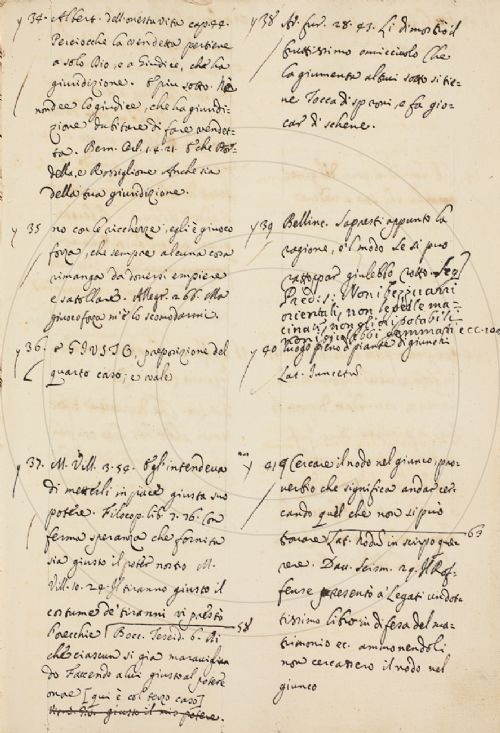 34. Albert. dell'onesta vita cap. 44.
Perciocche la vendetta pertiene
a solo Dio, e a Giudice, che ha
giuridizione. E più sotto. Nè
non dee lo giudice, che ha giuridi-
zione dubitare di fare vendet-
ta. Bern. Orl. 1. 4. 21. E che
della, e Rossiglione Anche sia
della tua giuridizione.
35 no con le ricchezze, egli è giuoco
forza, che sempre alcuna cosa
rimanga da doversi empiere
e satollare. Allegr. 266. Ma
giuocoforza m'è lo scomodarmi.
36. GIUSTO, preposizione del
quarto caso; e vale
37. M. Vill. 3. 54. Egli intendeva
di metterli in pace giusta suo
potere. Filocop. lib. 7. 36. Con
ferma speranza che fornita
sia giusto il poter nostro M.
Vill. 10. 24. Il tiranno giusto il
costume de' tiranni vi prestò
l'orecchie [Bocc. Teseid. 6. Di 58
che ciascun si gia maraviglian
do Faccendo a lui giusto al potere
onore [qui è col terzo caso]
giusto il mio potere.
38 fur. 28. 43. Li dimostrò il
bruttissimo omicciuolo Che
la giumenta altrui sotto si tie-
ne Tocca di sproni, e fa gio-
car di schene.
39 Bellinc. Sapresti appunto la
ragione, o 'l modo Se si può
rattoppar giulebbo rotto.
Red.
orientali, non le
potabili
ec. 100
40 luogo pieno di piante di giunchi
Lat. Juncetum
41 Cercare il nodo nel giunco, pro-
verbio che significa andar cer-
cando quel che non si può
trovare [Lat. Nodum in scirpo quae- 63
rere. Dav. Scism. 29. Il Rof-
fense presentò a' Legati un dot-
tissimo libro in difesa del ma-
trimonio ec. ammonendoli
non cercassero il nodo nel
giunco